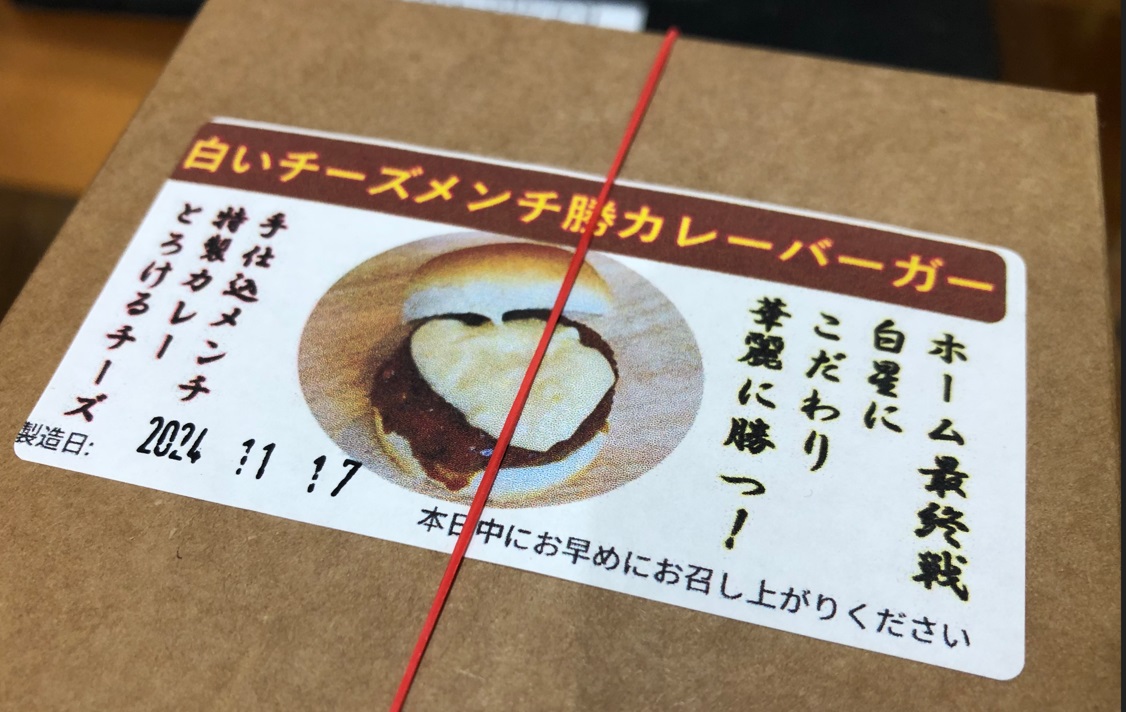 白いチーズメンチ勝カレーバーガー
ホーム最終戦
白星に
こだわり
華麗に勝つ!
手仕込メンチ
特製カレー
とろけるチーズ
製造日: 2024 11 17
本日中にお早めにお召し上がりください